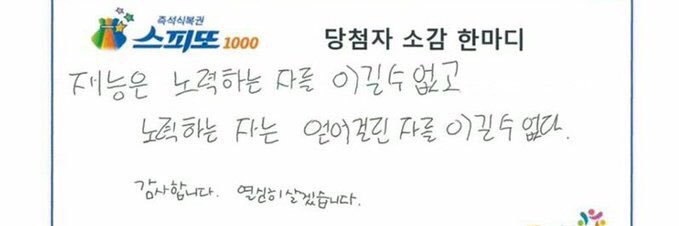 즉석식복권
스피또1000
당첨자 소감 한마디
재능은 노력하는 자를 이길수 없고
노력하는 자는 얻어걸린 자를 이길수 없다.
감사합니다. 열심히 살겠습니다.